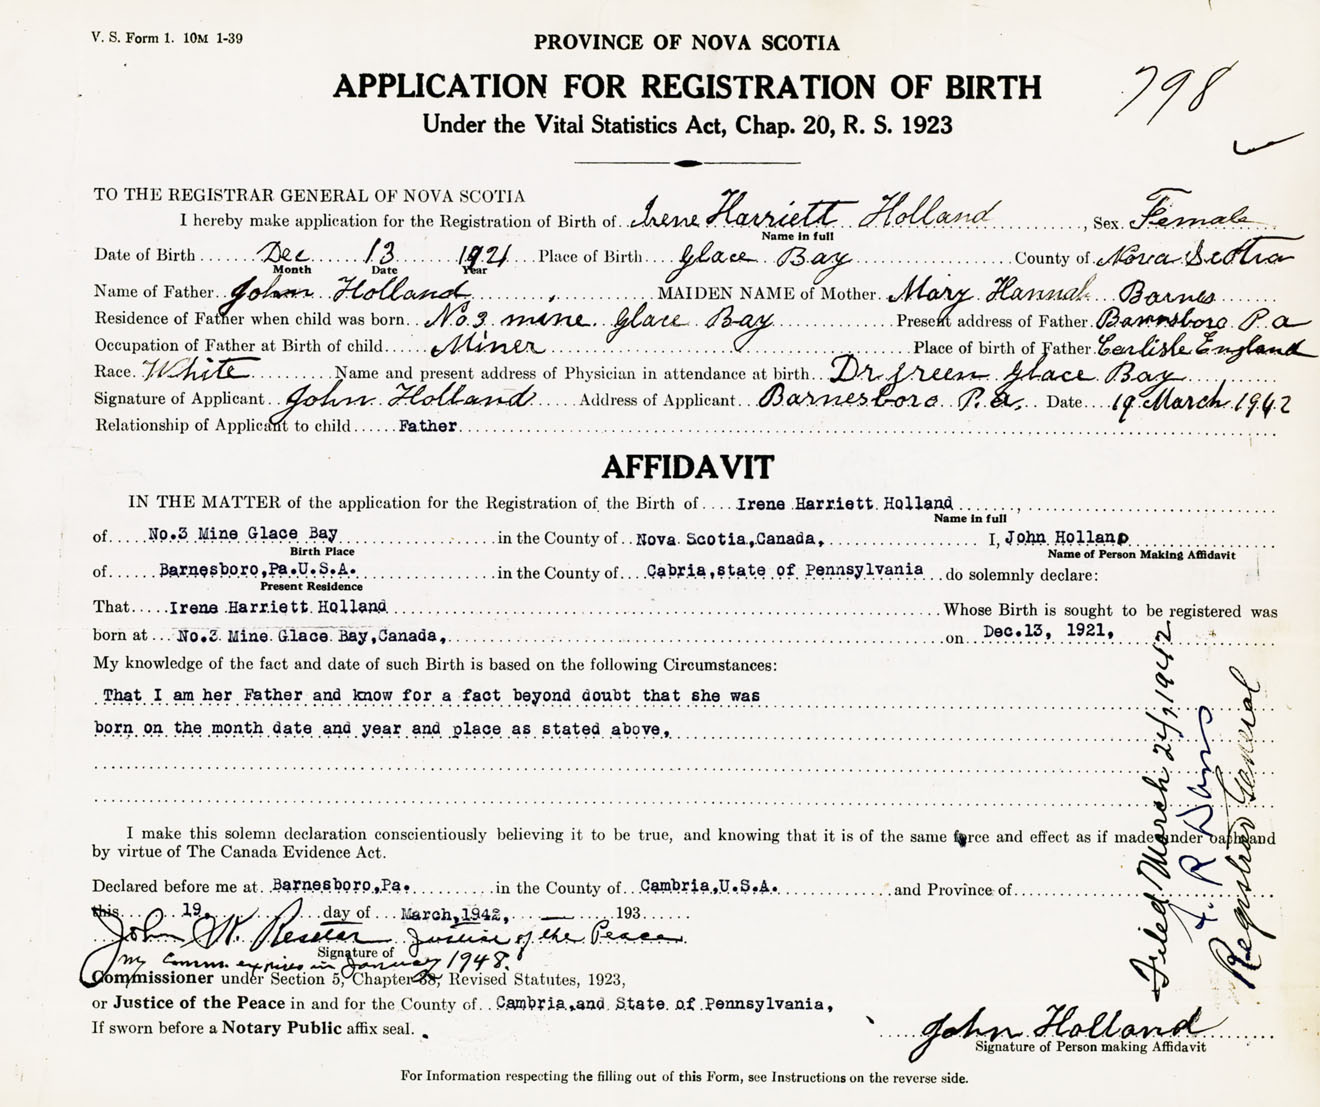 V. S. Form 1. 10M 1-39
PROVINCE OF NOVA SCOTIA
APPLICATION FOR REGISTRATION OF BIRTH
798
Under the Vital Statistics Act, Chap. 20, R. S. 1923
TO THE REGISTRAR GENERAL OF NOVA SCOTIA
I hereby make application for the Registration of Birth of Irene Harriett Holland, Sex. Female
Name in full
Date of Birth Dec 13 1921 Place of Birth Glace Bay County of Nova Scotia
Month Date Year
Name of Father John Holland MAIDEN NAME of Mother Mary Hannah Barnes
Residence of Father when child was born No. 3 mine Glace Bay Present address of Father Barnsboro Pa
Occupation of Father at Birth of child Miner Place of birth of Father Carlisle England
Race. White Name and present address of Physician in attendance at birth Dr green Glace Bay
Signature of Applicant John Holland Address of Applicant Barnesboro P.a. Date 19 March 1942
Relationship of Applicant to child Father
AFFIDAVIT
IN THE MATTER of the application for the Registration of the Birth of Irene Harriett Holland,
Name in full
of No.3 Mine Glace Bay in the County of Nova Scotia,Canada, I, John Holland
Birth Place Name of Person Making Affidavit
of Barnesboro,Pa.U.S.A. in the County of Cabria,state of Pennsylvania do solemnly declare:
Present Residence
That Irene Harriett Holland Whose Birth is sought to be registered was
born at No.3 Mine Glace Bay,Canada, on Dec.13, 1921,
My knowledge of the fact and date of such Birth is based on the following Circumstances:
That I am her Father and know for a fact beyond doubt that she was
born on the month date and year and place as stated above,
I make this solemn declaration conscientiously believing it to be true, and knowing that it is of the same force and effect as if made under oath and
by virtue of The Canada Evidence Act.
Declared before me at Barnesboro,Pa. in the County of Cambria,U.S.A. and Province of
this 19, day of March,1942, 193
John W. Justice of the Peace
Signature of
My Comm. expires in January 1948.
Commissioner under Section 5, Chapter 38, Revised Statutes, 1923,
or Justice of the Peace in and for the County of Cambria,and State of Pennsylvania,
If sworn before a Notary Public affix seal.
John Holland
Signature of Person making Affidavit
For Information respecting the filling out of this Form, see Instructions on the reverse side.
Filed March 24, 1942
Registrar General